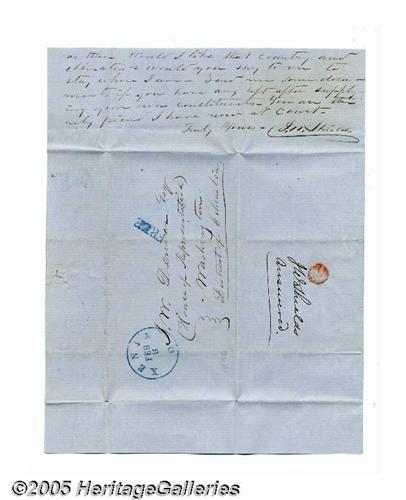 as there Would I like that Country and
climate, & would you say to me to
stay where I am - Send me some docu-
ments if you have any left after supply-
ing your own constituents - You are the
only friend I have now at Court -
Truly Yours -
FREE
J. W. Esq
House of Representatives
Washington
District of Columbia
XENIA O
FEB
8
Answered.
©2005 HeritageGalleries